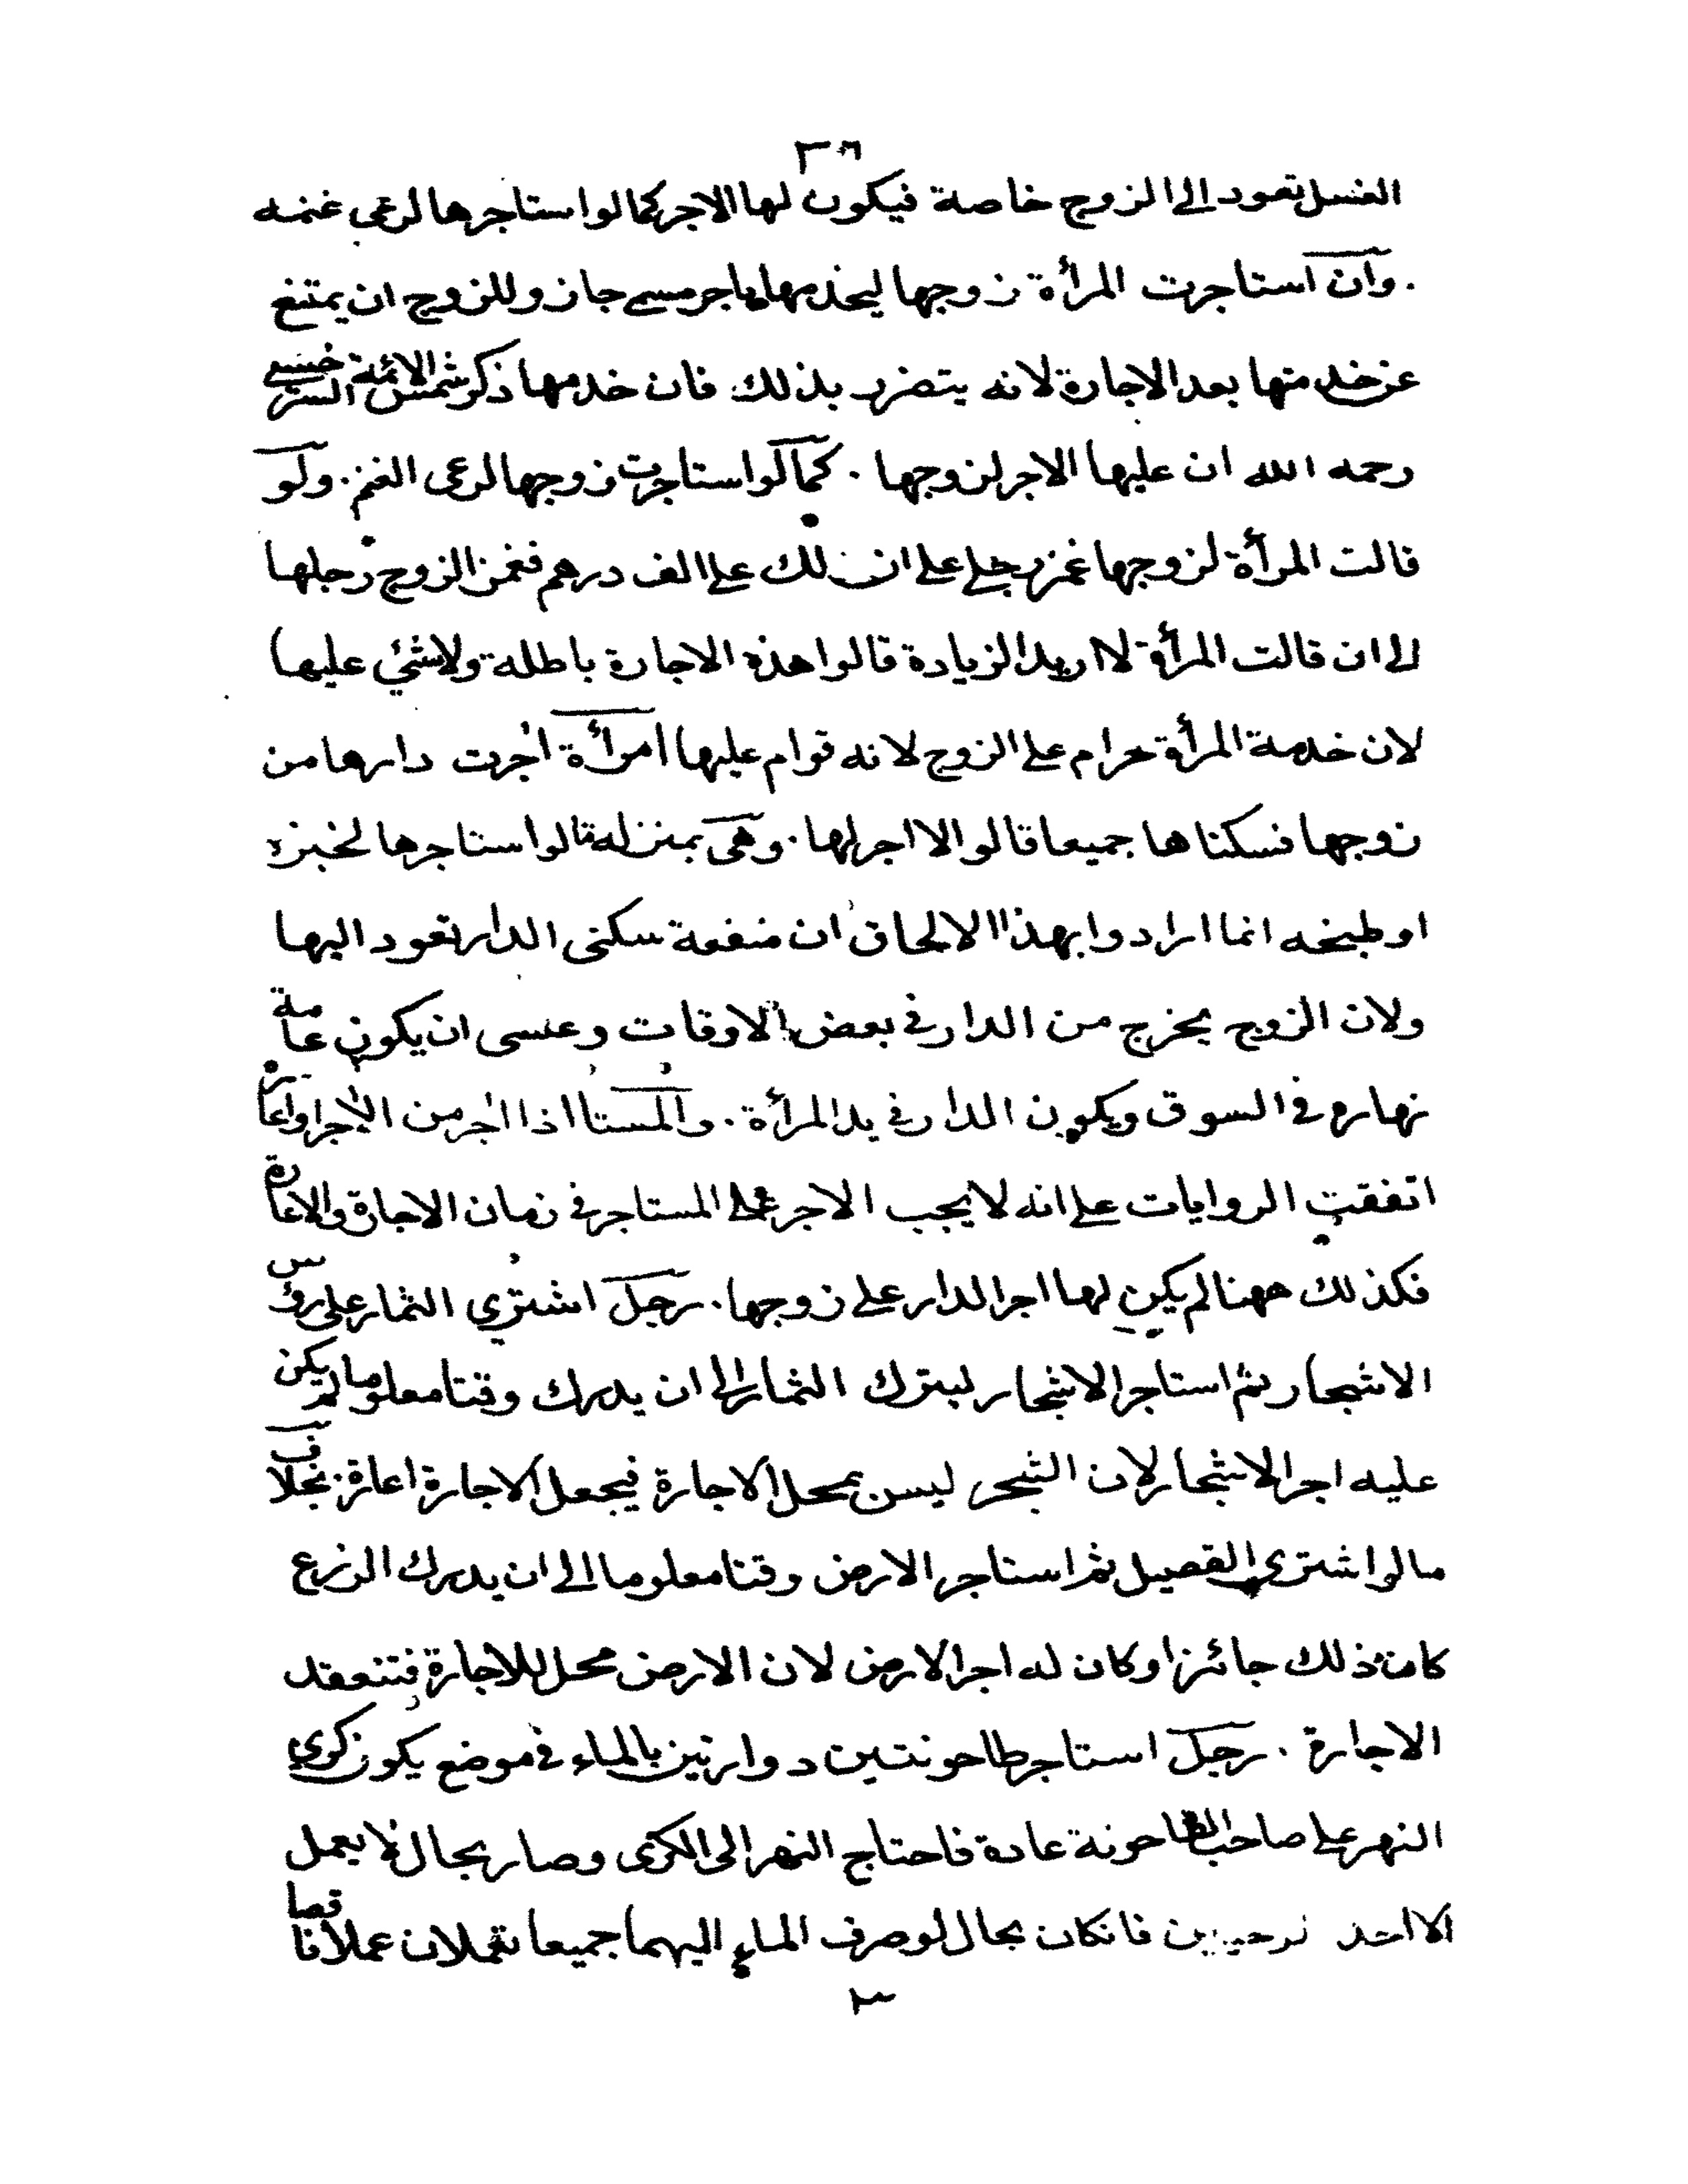 ٣٦
الغسل تعود الى الزوج خاصة فيكون لها الاجر كما لو استاجرها لرعى غنمه
. وان استاجرت المرأة زوجها ليخدمها باجر مسمى جاز وللزوج ان يمتنع
عن خدمتها بعد الاجارة لانه يتضرر بذلك فان خدمها ذكر شمس الائمة السرخسى
رحمه الله ان عليها الاجر لزوجها . كما لو استاجرت زوجها لرعى الغنم . ولو
قالت المرأة لزوجها غمز رجلى على ان لك على الف درهم فغمز الزوج رجلها
الى ان قالت المرأة لا اريد الزيادة قالوا هذه الاجارة باطلة ولا شئ عليها
لان خدمة المرأة حرام على الزوج لانه قوام عليها امرأة اجرت دارها من
زوجها فسكناها جميعا قالوا لا اجر لها . وهى بمنزلة ما لو استاجرها لخبزه
او طبخه انما ارادوا بهذا الالحاق ان منفعة سكنى الدار تعود اليها
ولان الزوج يخرج من الدار فى بعض الاوقات وعسى ان يكون عامة
نهاره فى السوق ويكون الدار فى يد المرأة . والمستا اذا اجر من الاجر او اعار
اتفقت الروايات على انه لا يجب الاجر على المستاجر فى زمان الاجارة والاعارة
فكذلك ههنا لم يكن لها اجر الدار على زوجها . رجل اشترى الثمار على رؤس
الاشجار ثم استاجر الاشجار ليترك الثمار الى ان يدرك وقتا معلوما لم يكن
عليه اجر الاشجار لان الشجر ليس بمحل الاجارة فيجعل الاجارة اعارة بخلاف
ما لو اشترى القصيل ثم استاجر الارض وقتا معلوما الى ان يدرك الزرع
كان ذلك جائزا وكان له اجر الارض لان الارض محل للاجارة فتنعقد
الاجارة . رجل استاجر طاحونتين دوارتين بالماء فى موضع يكون كرى
النهر على صاحب الطاحونة عادة فاحتاج النهر الى الكرى وصار بحال لا يعمل
الا احد فان كان بحال لو صرف الماء اليهما جميعا تعملان عملا ناقصا